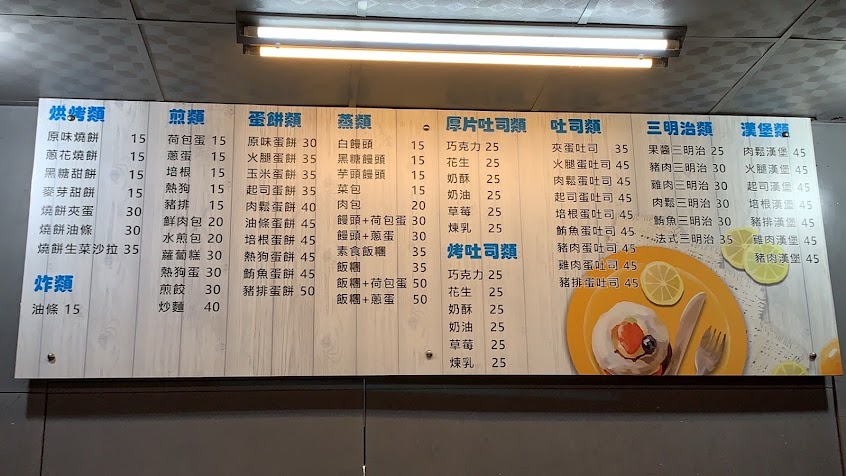 烘烤類
原味燒餅 15
蔥花燒餅 15
黑糖甜餅 15
麥芽甜餅 15
燒餅夾蛋 30
燒餅油條 30
燒餅生菜沙拉 35
炸類
油條 15
煎類
荷包蛋 15
蔥蛋 15
培根 15
熱狗 15
豬排 15
鮮肉包 20
水煎包 20
蘿蔔糕 30
熱狗蛋 30
煎餃 30
炒麵 40
蛋餅類
原味蛋餅 30
火腿蛋餅 35
玉米蛋餅 35
起司蛋餅 35
肉鬆蛋餅 40
油條蛋餅 45
培根蛋餅 45
熱狗蛋餅 45
鮪魚蛋餅 45
豬排蛋餅 50
蒸類
白饅頭 15
黑糖饅頭 15
芋頭饅頭 15
菜包 15
肉包 20
饅頭+荷包蛋 30
饅頭+蔥蛋 30
素食飯糰 35
飯糰 35
飯糰+荷包蛋 50
飯糰+蔥蛋 50
厚片吐司類
巧克力 25
花生 25
奶酥 25
奶油 25
草莓 25
煉乳 25
烤吐司類
巧克力 25
花生 25
奶酥 25
奶油 25
草莓 25
煉乳 25
吐司類
夾蛋吐司 35
火腿蛋吐司 45
肉鬆蛋吐司 45
起司蛋吐司 45
培根蛋吐司 45
鮪魚蛋吐司 45
豬肉蛋吐司 45
雞肉蛋吐司 45
豬排蛋吐司 50
三明治類
果醬三明治 25
豬肉三明治 30
雞肉三明治 30
肉鬆三明治 30
鮪魚三明治 30
法式三明治 35
漢堡類
肉鬆漢堡 45
火腿漢堡 45
起司漢堡 45
培根漢堡 45
豬排漢堡 45
雞肉漢堡 45
豬肉漢堡 45